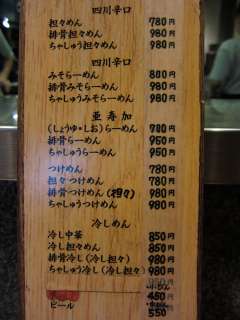 四川辛口
担々めん 780円
排骨担々めん 980円
ちゃしゅう担々めん 980円
四川辛口
みそらーめん 800円
排骨みそらーめん 980円
ちゃしゅうみそらーめん 980円
亜寿加
(しょうゆ・しお)らーめん 700円
排骨らーめん 950円
ちゃしゅうらーめん 950円
つけめん 780円
担々つけめん 780円
排骨つけめん(担々) 980円
ちゃしゅうつけめん 980円
冷しめん
冷し中華 850円
冷し担々めん 850円
排骨冷し(冷し担々) 980円
ちゃしゅう冷し(冷し担々) 980円
450円
ビール 550